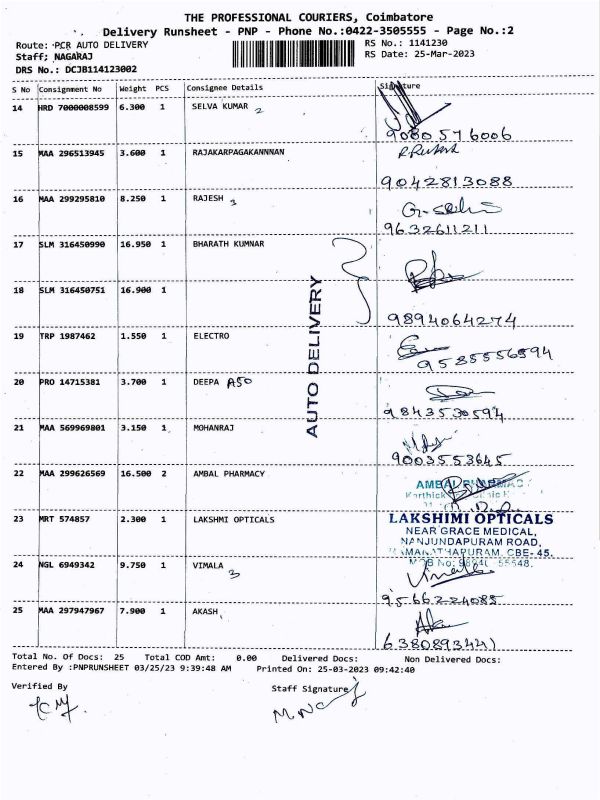 THE PROFESSIONAL COURIERS, Coimbatore
Delivery Runsheet - PNP - Phone No.:0422-3505555 - Page No.:2
Route: PCR AUTO DELIVERY RS No.: 1141230
Staff; NAGARAJ RS Date: 25-Mar-2023
DRS No.: DCJB114123002
S No Consignment No Weight PCS Consignee Details Signature
14 HRD 7000008599 6.300 1 SELVA KUMAR 2
9080576006
15 MAA 296513945 3.600 1 RAJAKARPAGAKANNNAN
9042813088
16 MAA 299295810 8.250 1 RAJESH 3
9632611211
17 SLM 316450990 16.950 1 BHARATH KUMNAR
18 SLM 316450751 16.900 1
9894064274
AUTO DELIVERY
19 TRP 1987462 1.550 1 ELECTRO
9585556594
20 PRO 14715381 3.700 1 DEEPA A50
9843530594
21 MAA 569969801 3.150 1 MOHANRAJ
9003553645
22 MAA 299626569 16.500 2 AMBAL PHARMACY
AMBAL PHARMACY
23 MRT 574857 2.300 1 LAKSHMI OPTICALS
LAKSHIMI OPTICALS
NEAR GRACE MEDICAL,
NANJUNDAPURAM ROAD,
RAMANATHAPURAM, CBE- 45.
24 NGL 6949342 9.750 1 VIMALA 3
Vimala
9566224085
25 MAA 297947967 7.900 1 AKASH
6380893441
Total No. Of Docs: 25 Total COD Amt: 0.00 Delivered Docs: Non Delivered Docs:
Entered By :PNPRUNSHEET 03/25/23 9:39:48 AM Printed On: 25-03-2023 09:42:40
Verified By Staff Signature